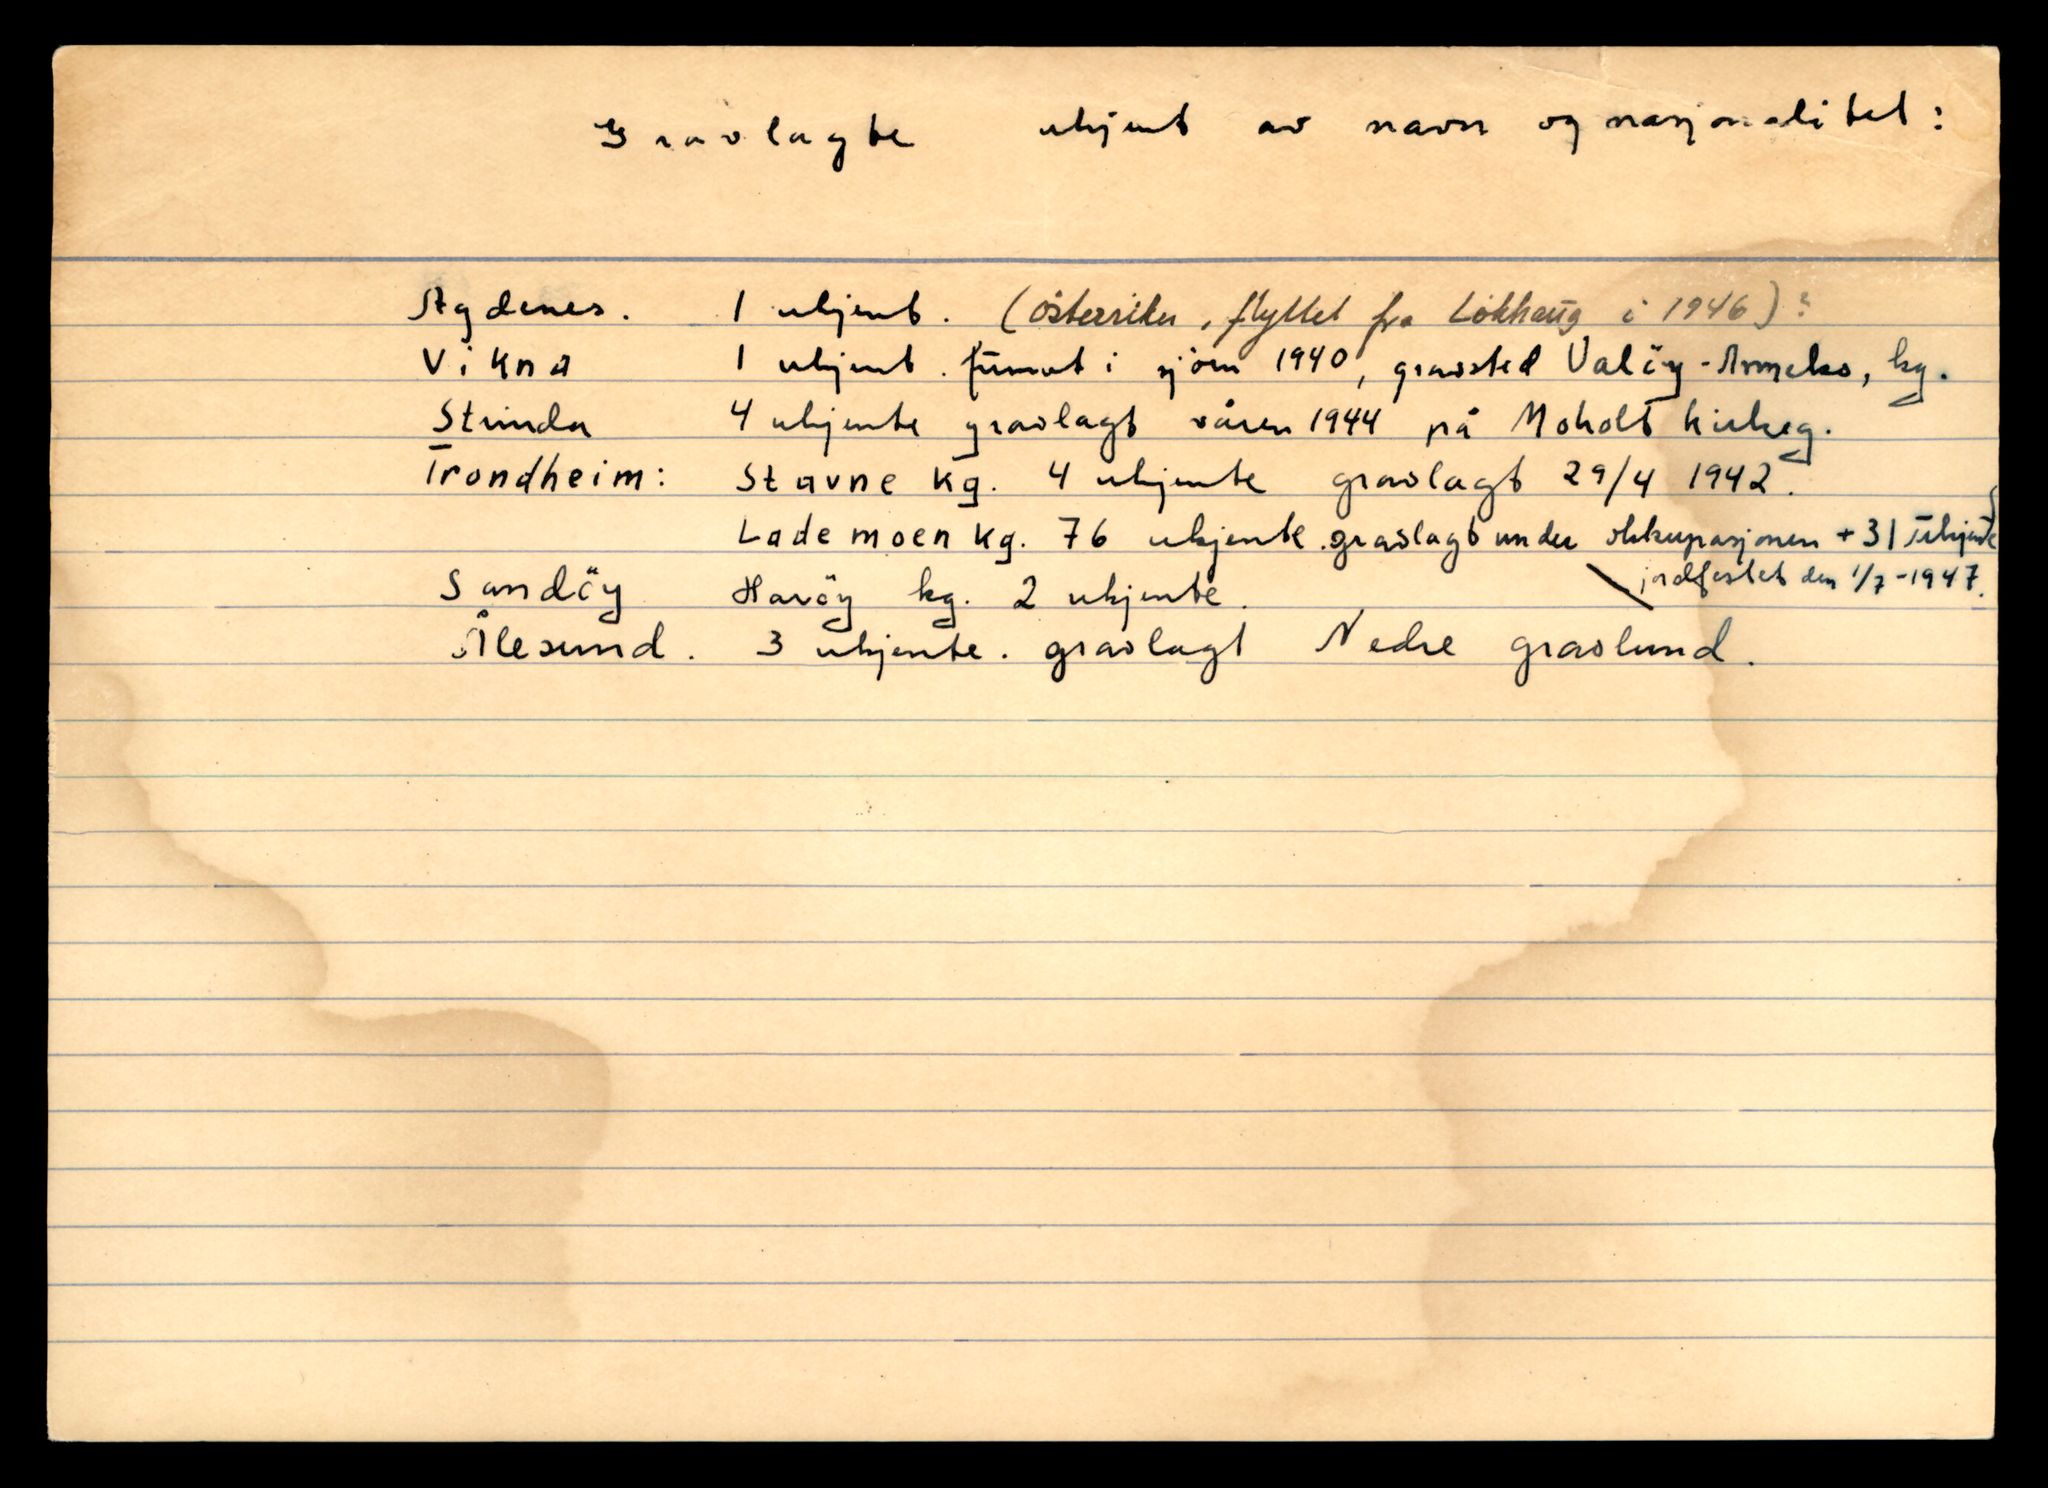 Gravlagte ukjent av navn og nasjonalitet:
Agdenes. 1 ukjent. (österriker, flyttet fra Lökhaug i 1946)?
Vikna 1 ukjent. funnet i sjöen 1940, gravsted Valöy - kg.
Strinda 4 ukjente gravlagt våren 1944 på Moholt kirkeg.
Trondheim: Stavne kg. 4 ukjente gravlagt 29/4 1942.
Lademoen kg. 76 ukjente. gravlagt under okkupasjonen + 31 ukjente
jordfestet den 1/7-1947.
Sandöy Haröy kg. 2 ukjente.
Ålesund. 3 ukjente. gravlagt Nedre gravlund.